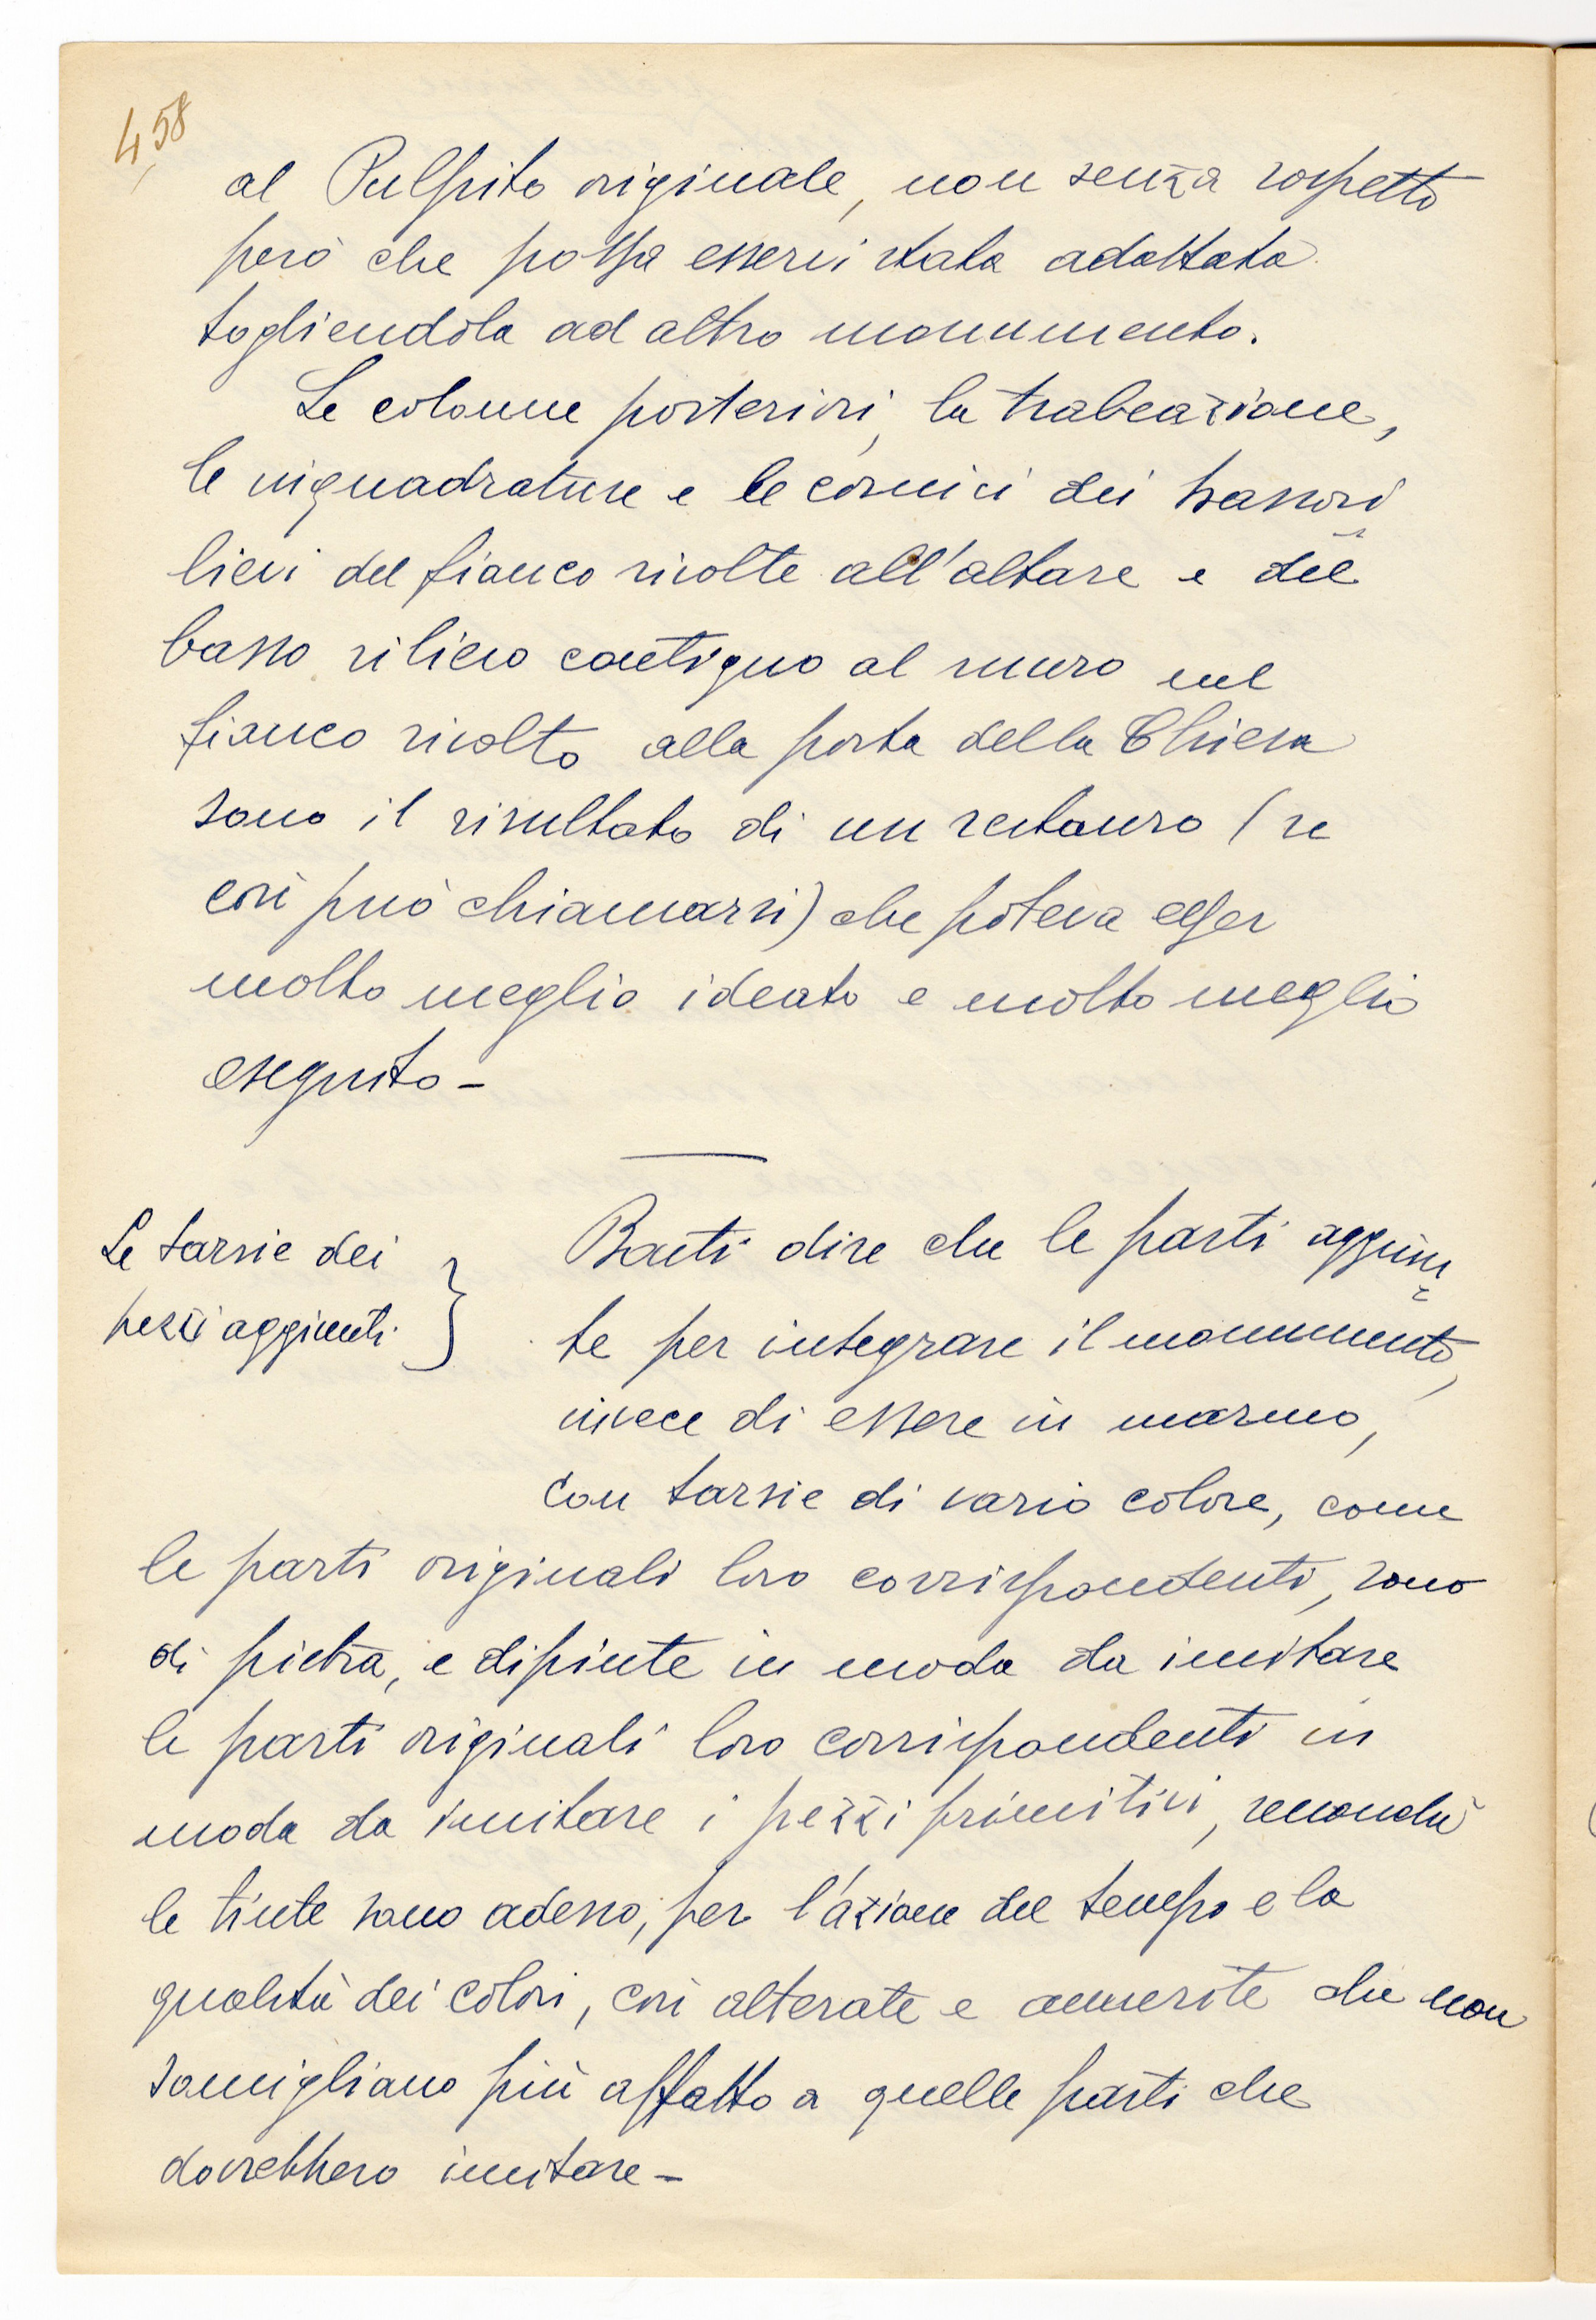 458
al Pulpito originale, non senza sospetto
però che possa esservi stata adattata
togliendola ad altro monumento.
Le colonne posteriori, la trabeazione,
le inquadrature e le cornici dei bassori
lievi del fianco rivolte all'altare e del
basso rilievo contiguo al muro nel
fianco rivolto alla porta della Chiesa
sono il risultato di un restauro (se
così può chiamarsi) che poteva esser
molto meglio ideato e molto meglio
eseguito -
Le tarsie dei
pezzi aggiunti
Basti dire che le parti aggiun
te per integrare il monumento,
invece di essere in marmo,
con tarsie di vario colore, come
le parti originali loro corrispondenti, sono
di pietra, e dipinte in modo da imitare
le parti originali loro corrispondenti in
modo da imitare i pezzi primitivi, senonchè
le tinte sono adesso, per l'azione del tempo e la
qualità dei colori, così alterate e annerite che non
somigliano più affatto a quelle parti che
dovrebbero imitare -